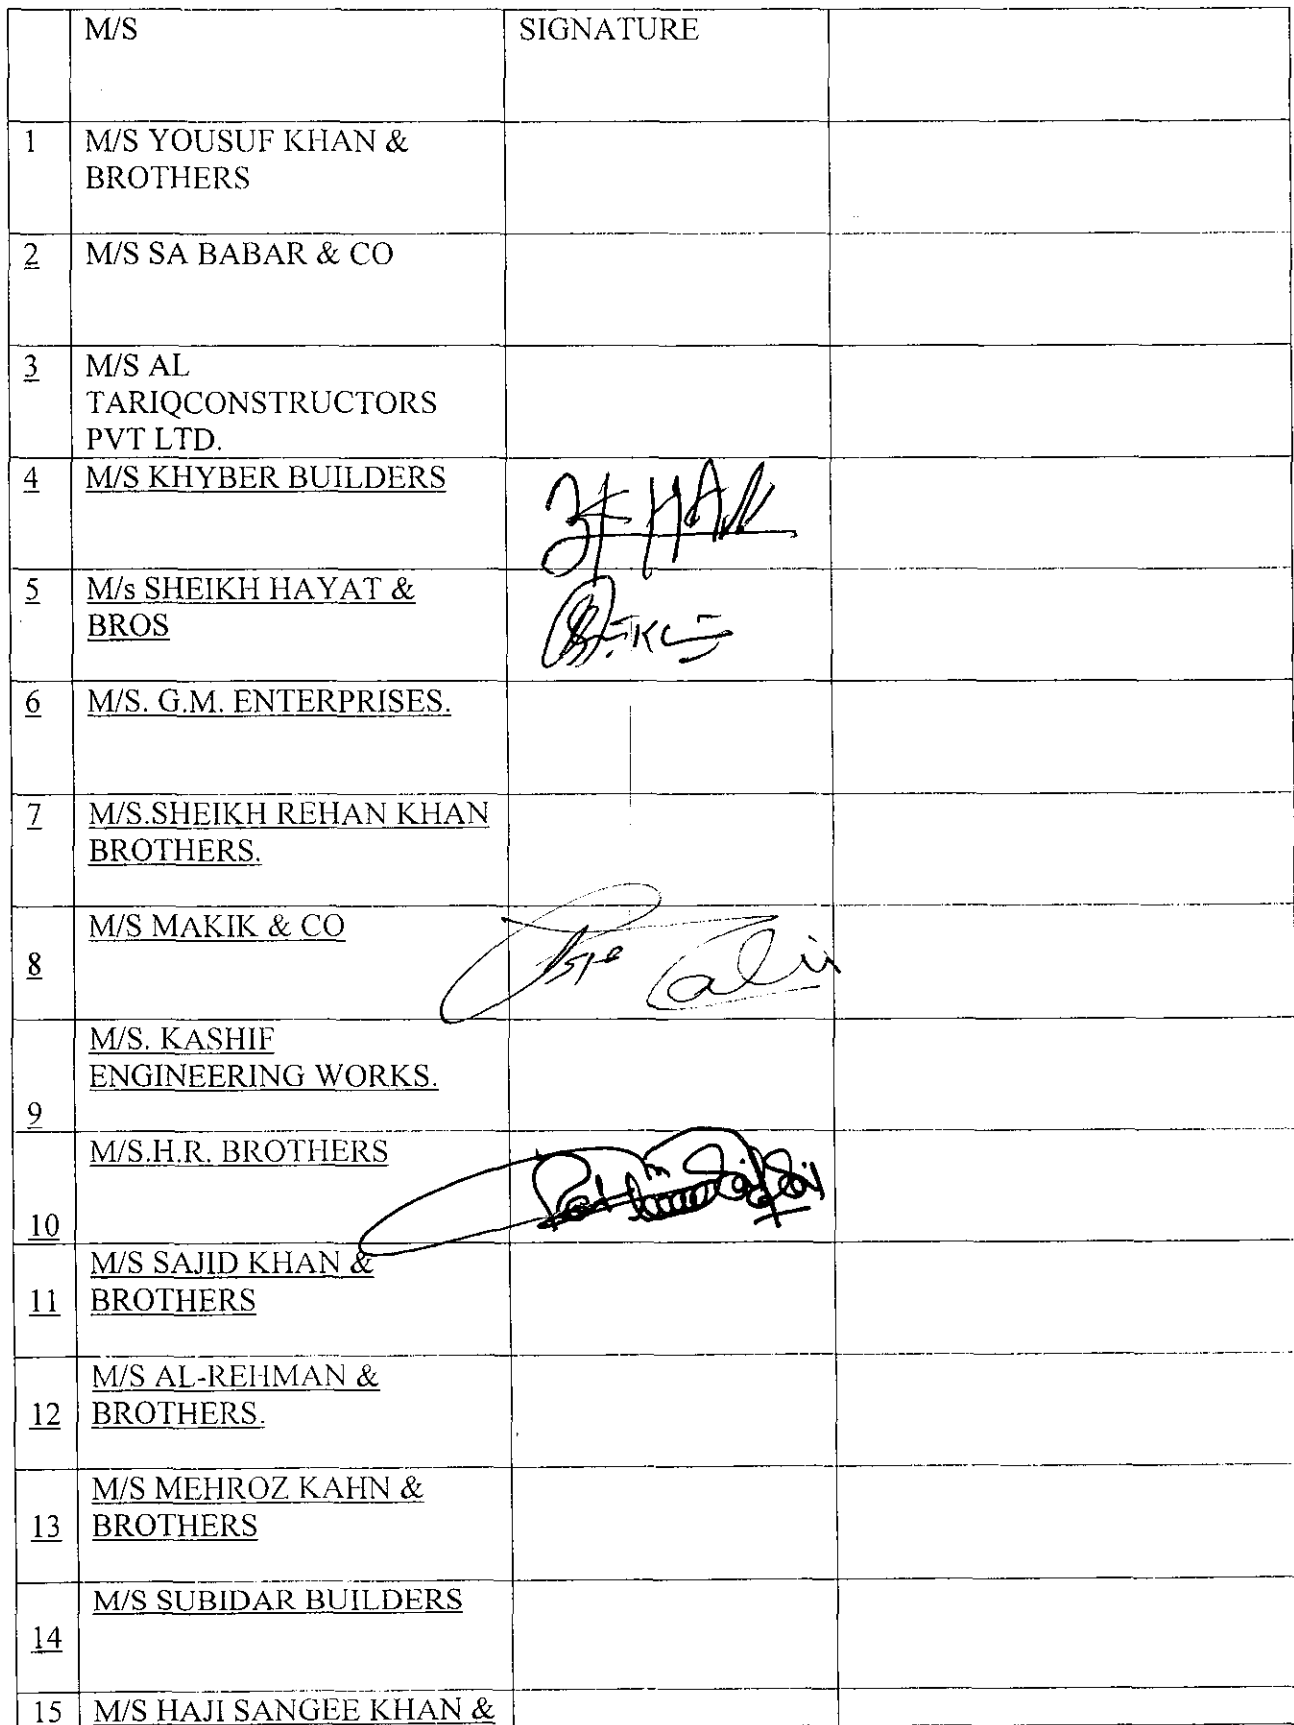 M/S SIGNATURE
1 M/S YOUSUF KHAN &
BROTHERS
2 M/S SA BABAR & CO
3 M/S AL
TARIQCONSTRUCTORS
PVT LTD.
4 M/S KHYBER BUILDERS
5 M/s SHEIKH HAYAT &
BROS
6 M/S. G.M. ENTERPRISES.
7 M/S.SHEIKH REHAN KHAN
BROTHERS.
M/S MAKIK & CO
8
M/S. KASHIF
ENGINEERING WORKS.
9
M/S.H.R. BROTHERS
10
M/S SAJID KHAN &
11 BROTHERS
M/S AL-REHMAN &
12 BROTHERS.
M/S MEHROZ KAHN &
13 BROTHERS
M/S SUBIDAR BUILDERS
14
15 M/S HAJI SANGEE KHAN &